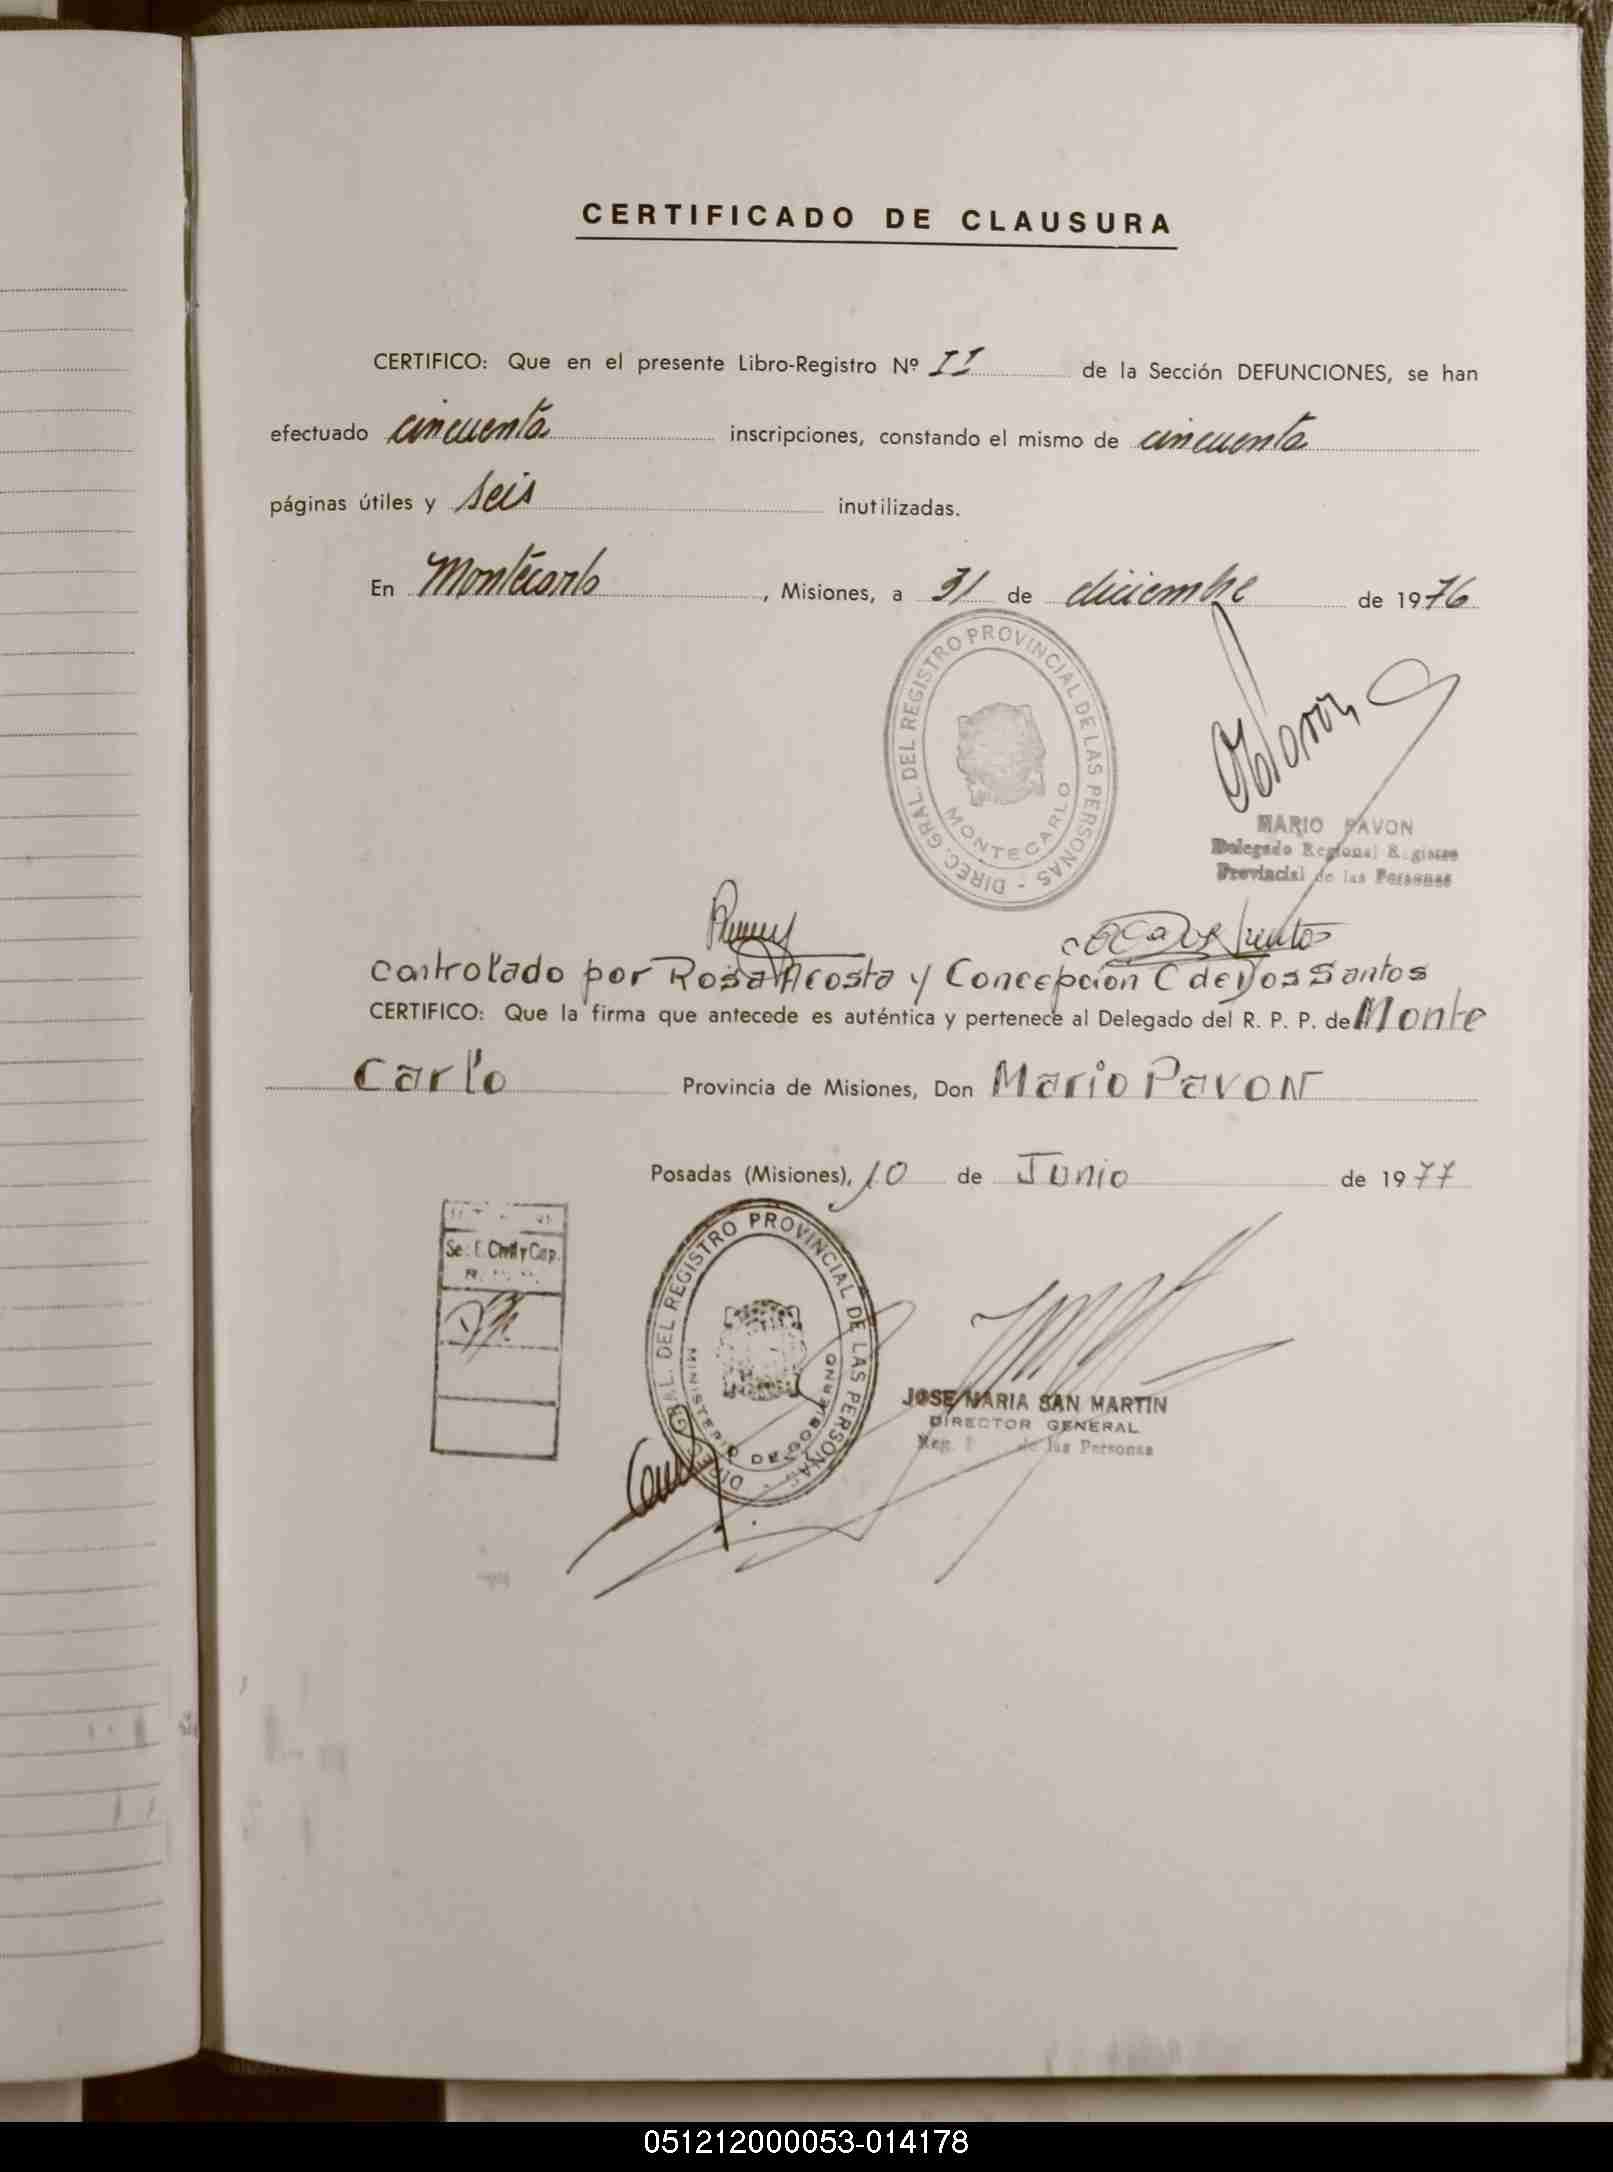 CERTIFICADO DE CLAUSURA
CERTIFICO: Que en el presente Libro-Registro Nº II de la Sección DEFUNCIONES, se han
efectuado cincuenta inscripciones, constando el mismo de cincuenta
páginas útiles y seis inutilizadas.
En Montecarlo, Misiones, a 31 de diciembre de 1976
DIREC. GRAL. DEL REGISTRO PROVINCIAL DE LAS PERSONAS -
MONTECARLO
MARIO PAVON
Delegado Regional Registro
Provincial de las Personas
Controlado por Rosa Acosta y Concepción C de Dos Santos
CERTIFICO: Que la firma que antecede es auténtica y pertenece al Delegado del R. P. P. de Monte
Carlo Provincia de Misiones, Don Mario Pavon
Posadas (Misiones), 10 de Junio de 1977
Se: E. Civil y Cap.
DIREC. GRAL. DEL REGISTRO PROVINCIAL DE LAS PERSONAS -
MINISTERIO DE GOBIERNO
JOSE MARIA SAN MARTIN
DIRECTOR GENERAL
Reg. de las Personas
051212000053-014178